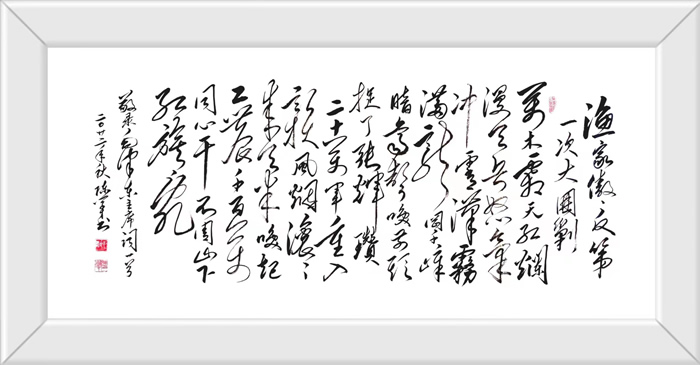 渔家傲反第
一次大圍剿
萬木霜天红爛
漫天兵怒氣
冲霄漢霧
满龙岡千嶂
暗齊声唤前头
捉了張輝瓒
二十萬军重入
赣风烟滚滚
来天半唤起
工農千百万
同心干不周山下
红旗乱
敬录毛泽东主席词一首
二〇廿二年秋 书